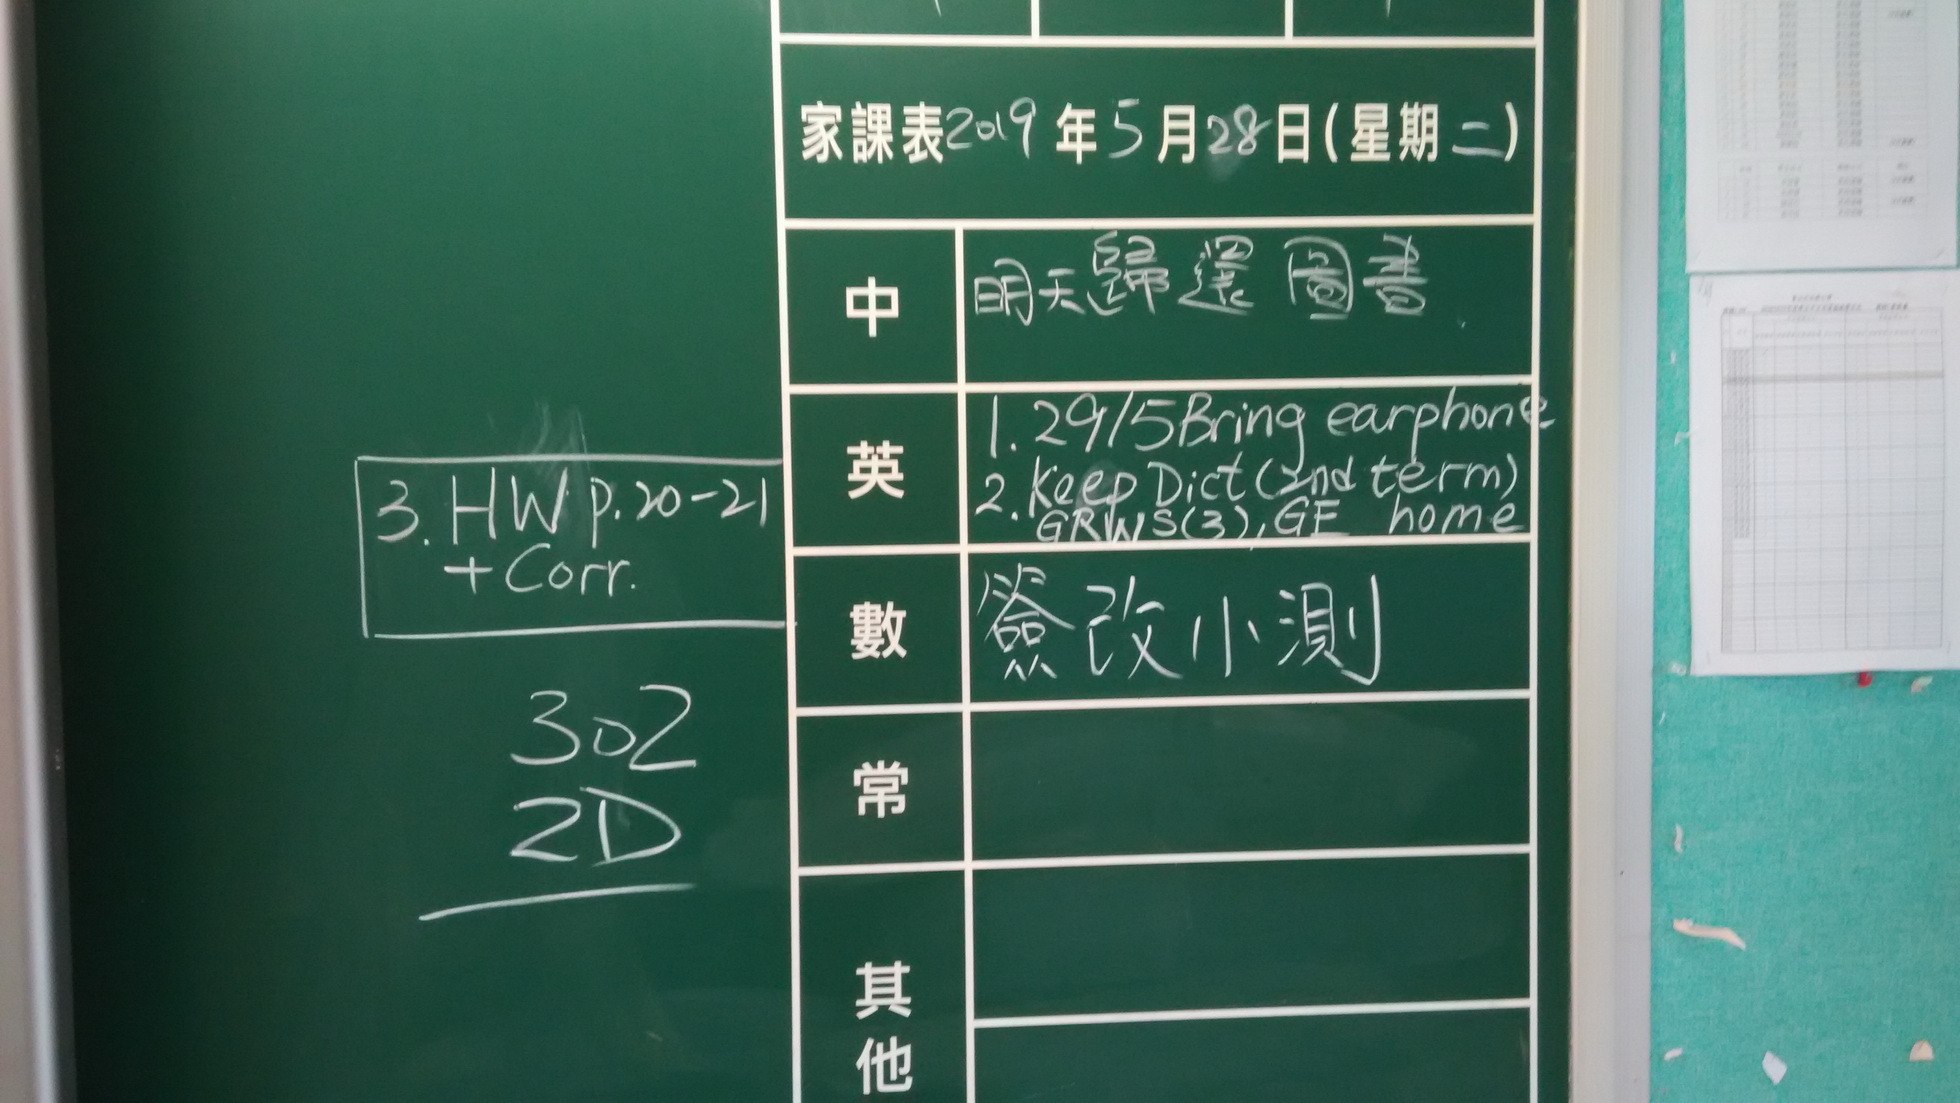 家課表2019年5月28日(星期二)
中
明天歸還圖書
英
1. 29/5 Bring earphone
2. Keep Dict (2nd term)
GRWS(3), GE home
3. HW p.20-21
+ Corr.
數
簽改小測
302
2D
常
其他